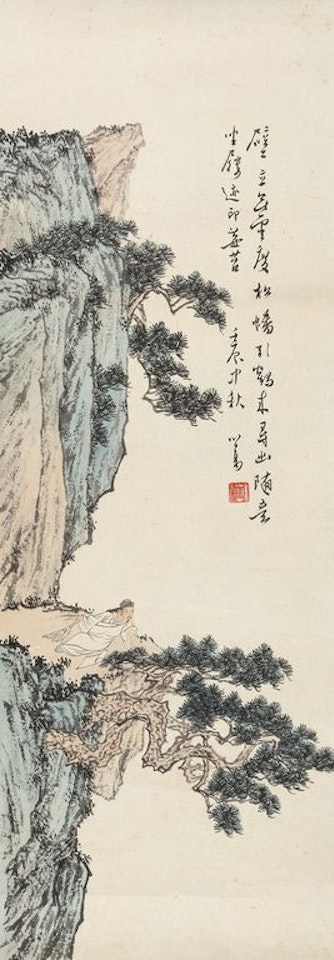 壁立雲度松幡引鶴來尋幽隨意
坐屐迹印莓苔 壬辰中秋 心畬